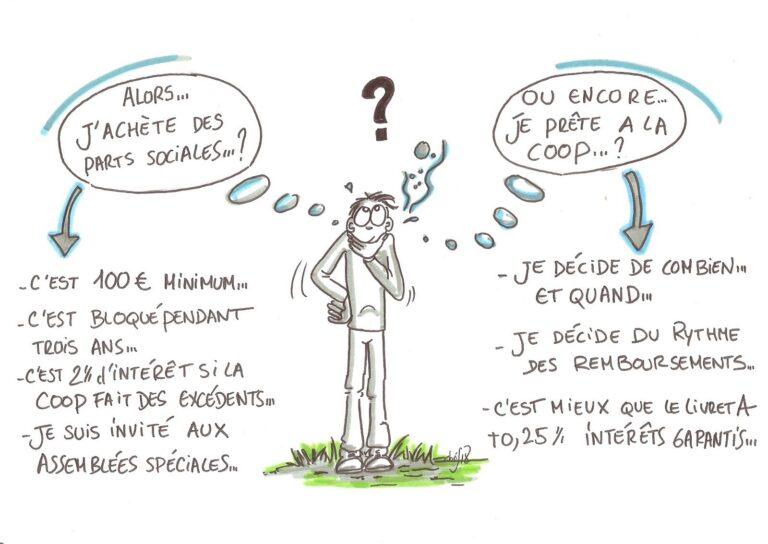 ALORS...
J'ACHÈTE DES
PARTS SOCIALES...?
?
OU ENCORE...
JE PRÊTE A LA
COOP...?
- C'EST 100 € MINIMUM...
- C'EST BLOQUÉ PENDANT
TROIS ANS...
- C'EST 2% d'INTÉRÊT SI LA
COOP FAIT DES EXCÉDENTS...
- JE SUIS INVITÉ AUX
ASSEMBLÉES SPÉCIALES...
- JE DÉCIDE DE COMBIEN...
ET QUAND...
- JE DÉCIDE DU RYTHME
DES REMBOURSEMENTS...
- C'EST MIEUX QUE LE LIVRET A
+0,25% INTÉRÊTS GARANTIS...